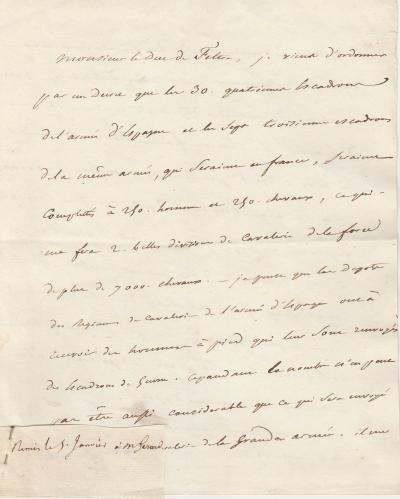 Monsieur le Duc de Feltre, je viens d'ordonner
par un decret que les 30. quatriemes Escadrons
de l'armée d'Espagne et les Sept troisiemes escadrons
de la même armée, qui seraient en france, seraient
Completés à 250. hommes et 250. chevaux, ce qui
me fera 2. belles divisions de Cavalerie de la force
de plus de 7000. chevaux. — je pense que les depots
des Régimens de Cavalerie de l'armée d'Espagne ont à
recevoir des hommes à pied qui leur sont renvoyés
des Escadrons de Guerre. Cependant le nombre n'en peut
pas être aussi considérable que ce qui sera envoyé
de la Grande armée. il me
Remis le 5. Janvier à Mr Gerard